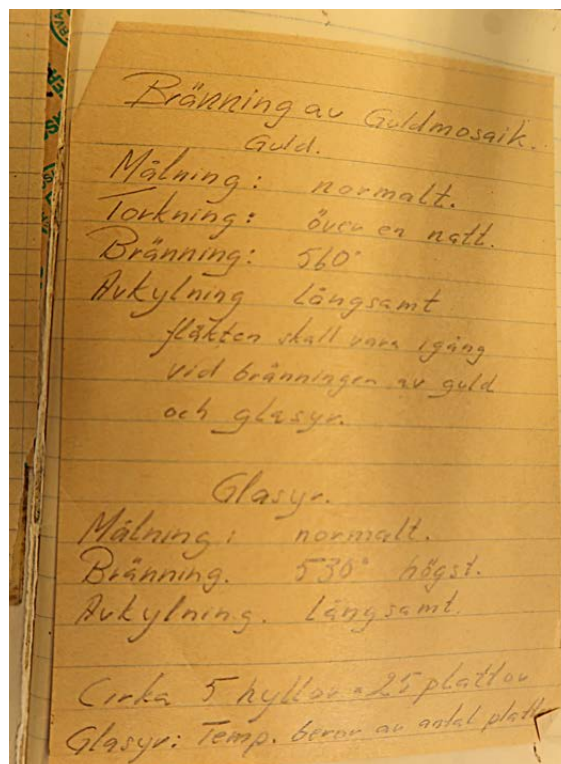 Bränning av Guldmosaik.
Guld.
Målning: normalt.
Torkning: över en natt.
Bränning: 560°
Avkylning långsamt
fläkten skall vara igång
vid bränningen av guld
och glasyr.
Glasyr.
Målning: normalt.
Bränning. 530° högst.
Avkylning. långsamt.
Cirka 5 hyllor = 25 plattor
Glasyr: Temp. beror av antal